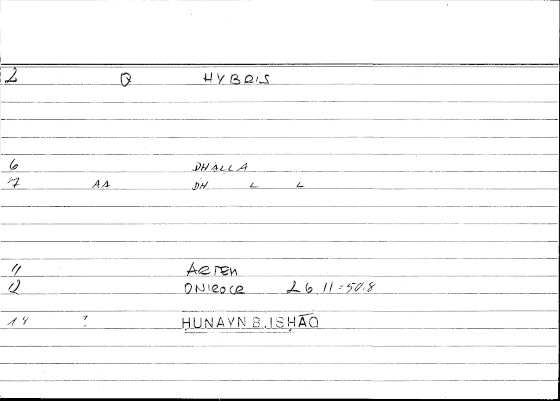 2 Q HYBRIS
6 DHALLA
7 AA DH L L
11 ARTEM
12 ONIROCR 26 11=50.8
14 ? ḤUNAYN B.ISḤĀQ